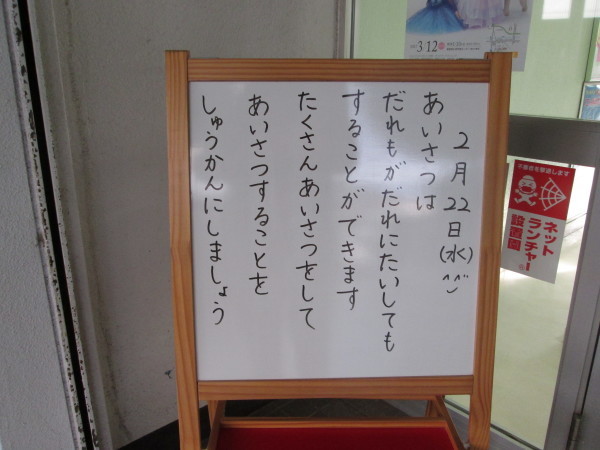 2月22日(水)
あいさつは
だれもがだれにたいしても
することができます
たくさんあいさつをして
あいさつすることを
しゅうかんにしましょう
3・12
不審者を撃退します
ネット
ランチャー
設置園